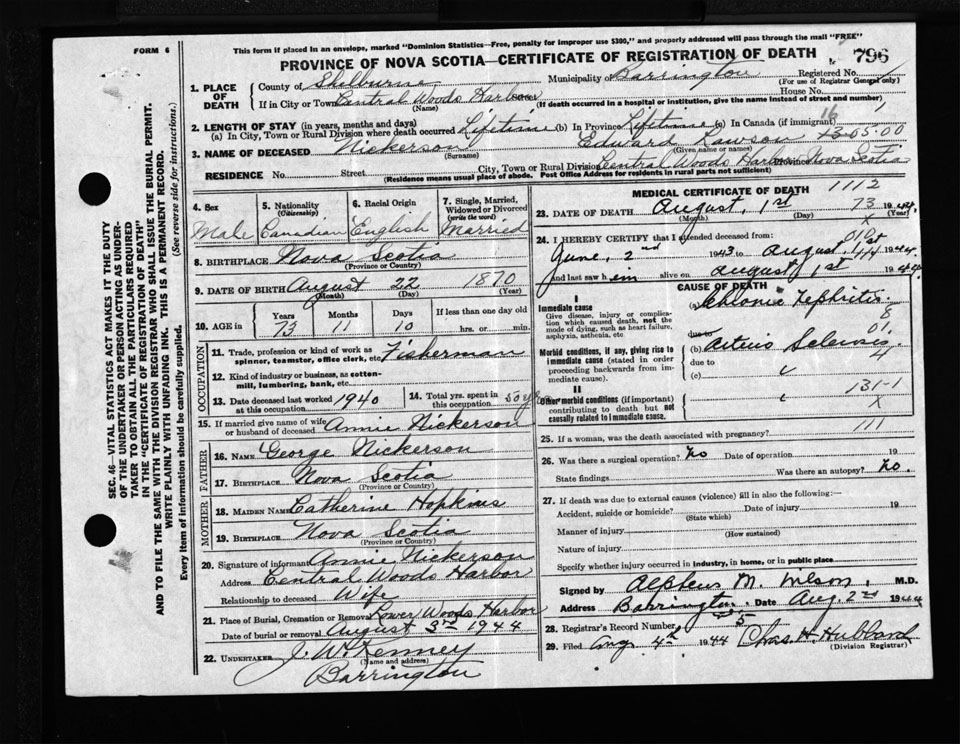 FORM 6
This form if placed in an envelope, marked "Dominion Statistics—Free, penalty for improper use $300," and properly addressed will pass through the mail "FREE"
PROVINCE OF NOVA SCOTIA—CERTIFICATE OF REGISTRATION OF DEATH
796
Registered No.
(For use of Registrar General only)
1. PLACE OF DEATH
County of Shelburne Municipality Barrington
If in City or Town Central Woods Harbor House No.
(Name) (If death occurred in a hospital or institution, give the name instead of street and number)
2. LENGTH OF STAY (in years, months and days)
(a) In City, Town or Rural Division where death occurred Lifetime (b) In Province Lifetime (c) In Canada (if immigrant)
16
05.00
3. NAME OF DECEASED Nickerson Edward Lawson
(Surname) (Given name or names)
RESIDENCE No. Street City, Town or Rural Division Central Woods Harbor Nova Scotia
(Residence means usual place of abode. Post Office Address for residents in rural parts not sufficient)
4. Sex Male
5. Nationality (Citizenship) Canadian
6. Racial Origin English
7. Single, Married, Widowed or Divorced (write the word) Married
8. BIRTHPLACE Nova Scotia
(Province or Country)
9. DATE OF BIRTH August 22 1870
(Month) (Day) (Year)
10. AGE in Years Months Days If less than one day
73 11 10 hrs. or min.
OCCUPATION
11. Trade, profession or kind of work as spinner, teamster, office clerk, etc. Fisherman
12. Kind of industry or business, as cotton-mill, lumbering, bank, etc.
13. Date deceased last worked at this occupation 1940
14. Total yrs. spent in this occupation 50 yrs
15. If married give name of wife or husband of deceased Annie Nickerson
FATHER
16. NAME George Nickerson
17. BIRTHPLACE Nova Scotia
(Province or Country)
MOTHER
18. MAIDEN NAME Catherine Hopkins
19. BIRTHPLACE Nova Scotia
(Province or Country)
20. Signature of informant Annie Nickerson
Address Central Woods Harbor
Relationship to deceased Wife
21. Place of Burial, Cremation or Removal Lower Woods Harbor
Date of burial or removal August 3rd 1944
22. UNDERTAKER J. W. Kenney
(Name and address)
Barrington
MEDICAL CERTIFICATE OF DEATH
1112
23. DATE OF DEATH August, 1st 73 1944
(Month) (Day) (Year)
X
24. I HEREBY CERTIFY that I attended deceased from:
010
June, 2nd 1943 to August 1st 1944
and last saw h em alive on August 1st 1944
CAUSE OF DEATH
I
Immediate cause
Give disease, injury or complication which caused death, not the mode of dying, such as heart failure, asphyxia, asthenia, etc
(a) Chronic Nephritis
8
due to
01.
Morbid conditions, if any, giving rise to immediate cause (stated in order proceeding backwards from immediate cause).
(b)
4
due to
(c)
II
Other morbid conditions (if important) contributing to death but not causally related to immediate cause.
131-1
X
111
25. If a woman, was the death associated with pregnancy?
26. Was there a surgical operation? No Date of operation 19
State findings Was there an autopsy? No.
27. If death was due to external causes (violence) fill in also the following:—
Accident, suicide or homicide? Date of injury 19
(State which)
Manner of injury
(How sustained)
Nature of injury
Specify whether injury occurred in industry, in home, or in public place
Signed by Alpheus M. Wilson, M.D.
Address Barrington. Date Aug. 2nd 1944
28. Registrar's Record Number 5
29. Filed Aug 4th 1944 Chas. H. Hubbard
(Division Registrar)
SEC. 46—VITAL STATISTICS ACT MAKES IT THE DUTY
OF THE UNDERTAKER OR PERSON ACTING AS UNDER-
TAKER TO OBTAIN ALL THE PARTICULARS REQUIRED
IN THE "CERTIFICATE OF REGISTRATION OF DEATH"
AND TO FILE THE SAME WITH THE DIVISION REGISTRAR WHO SHALL ISSUE THE BURIAL PERMIT.
WRITE PLAINLY WITH UNFADING INK. THIS IS A PERMANENT RECORD.
Every item of information should be carefully supplied. (See reverse side for instructions.)